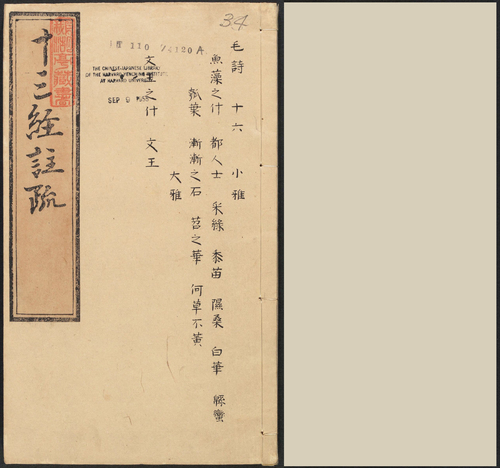 34
毛詩 十六 小雅
魚藻之什 都人士 采綠 黍苗 隰桑 白華 緜蠻
瓠葉 漸漸之石 苕之華 何草不黃
大雅
文王之什 文王
110
THE CHINESE-JAPANESE LIBRARY
OF THE HARVARD-YENCHING INSTITUTE
AT HARVARD UNIVERSITY
SEP
十三經註疏